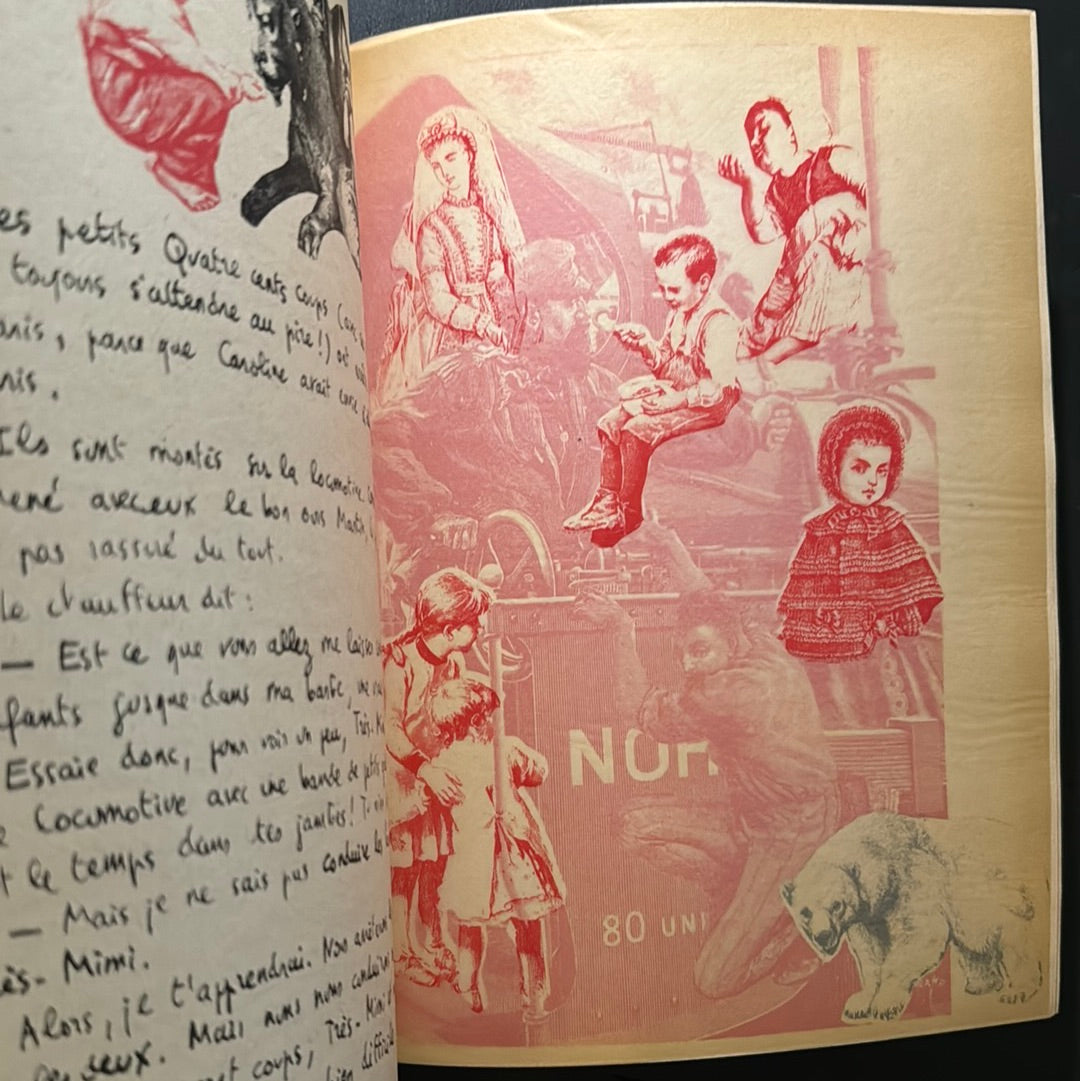 es petits Quatre cents coups
toujours s'attendre au pire!) ont
parce que Caroline avait
Ils sont montés sur la locomotive
avec eux le bon ours Martin
pas rassuré du tout.
Le chauffeur dit:
— Est ce que vous allez me laisser
fants jusque dans ma barbe, une
Essaie donc, pour voir un peu, Très-
Locomotive avec une bande de petits
t le temps dans tes jambes! Tu
— Mais je ne sais pas conduire les
ès-Mimi.
Alors, je t'apprendrai. Nous
deux. Mais nous nous
coups, Très-Mimi
bien difficile
NOR
80 UNI